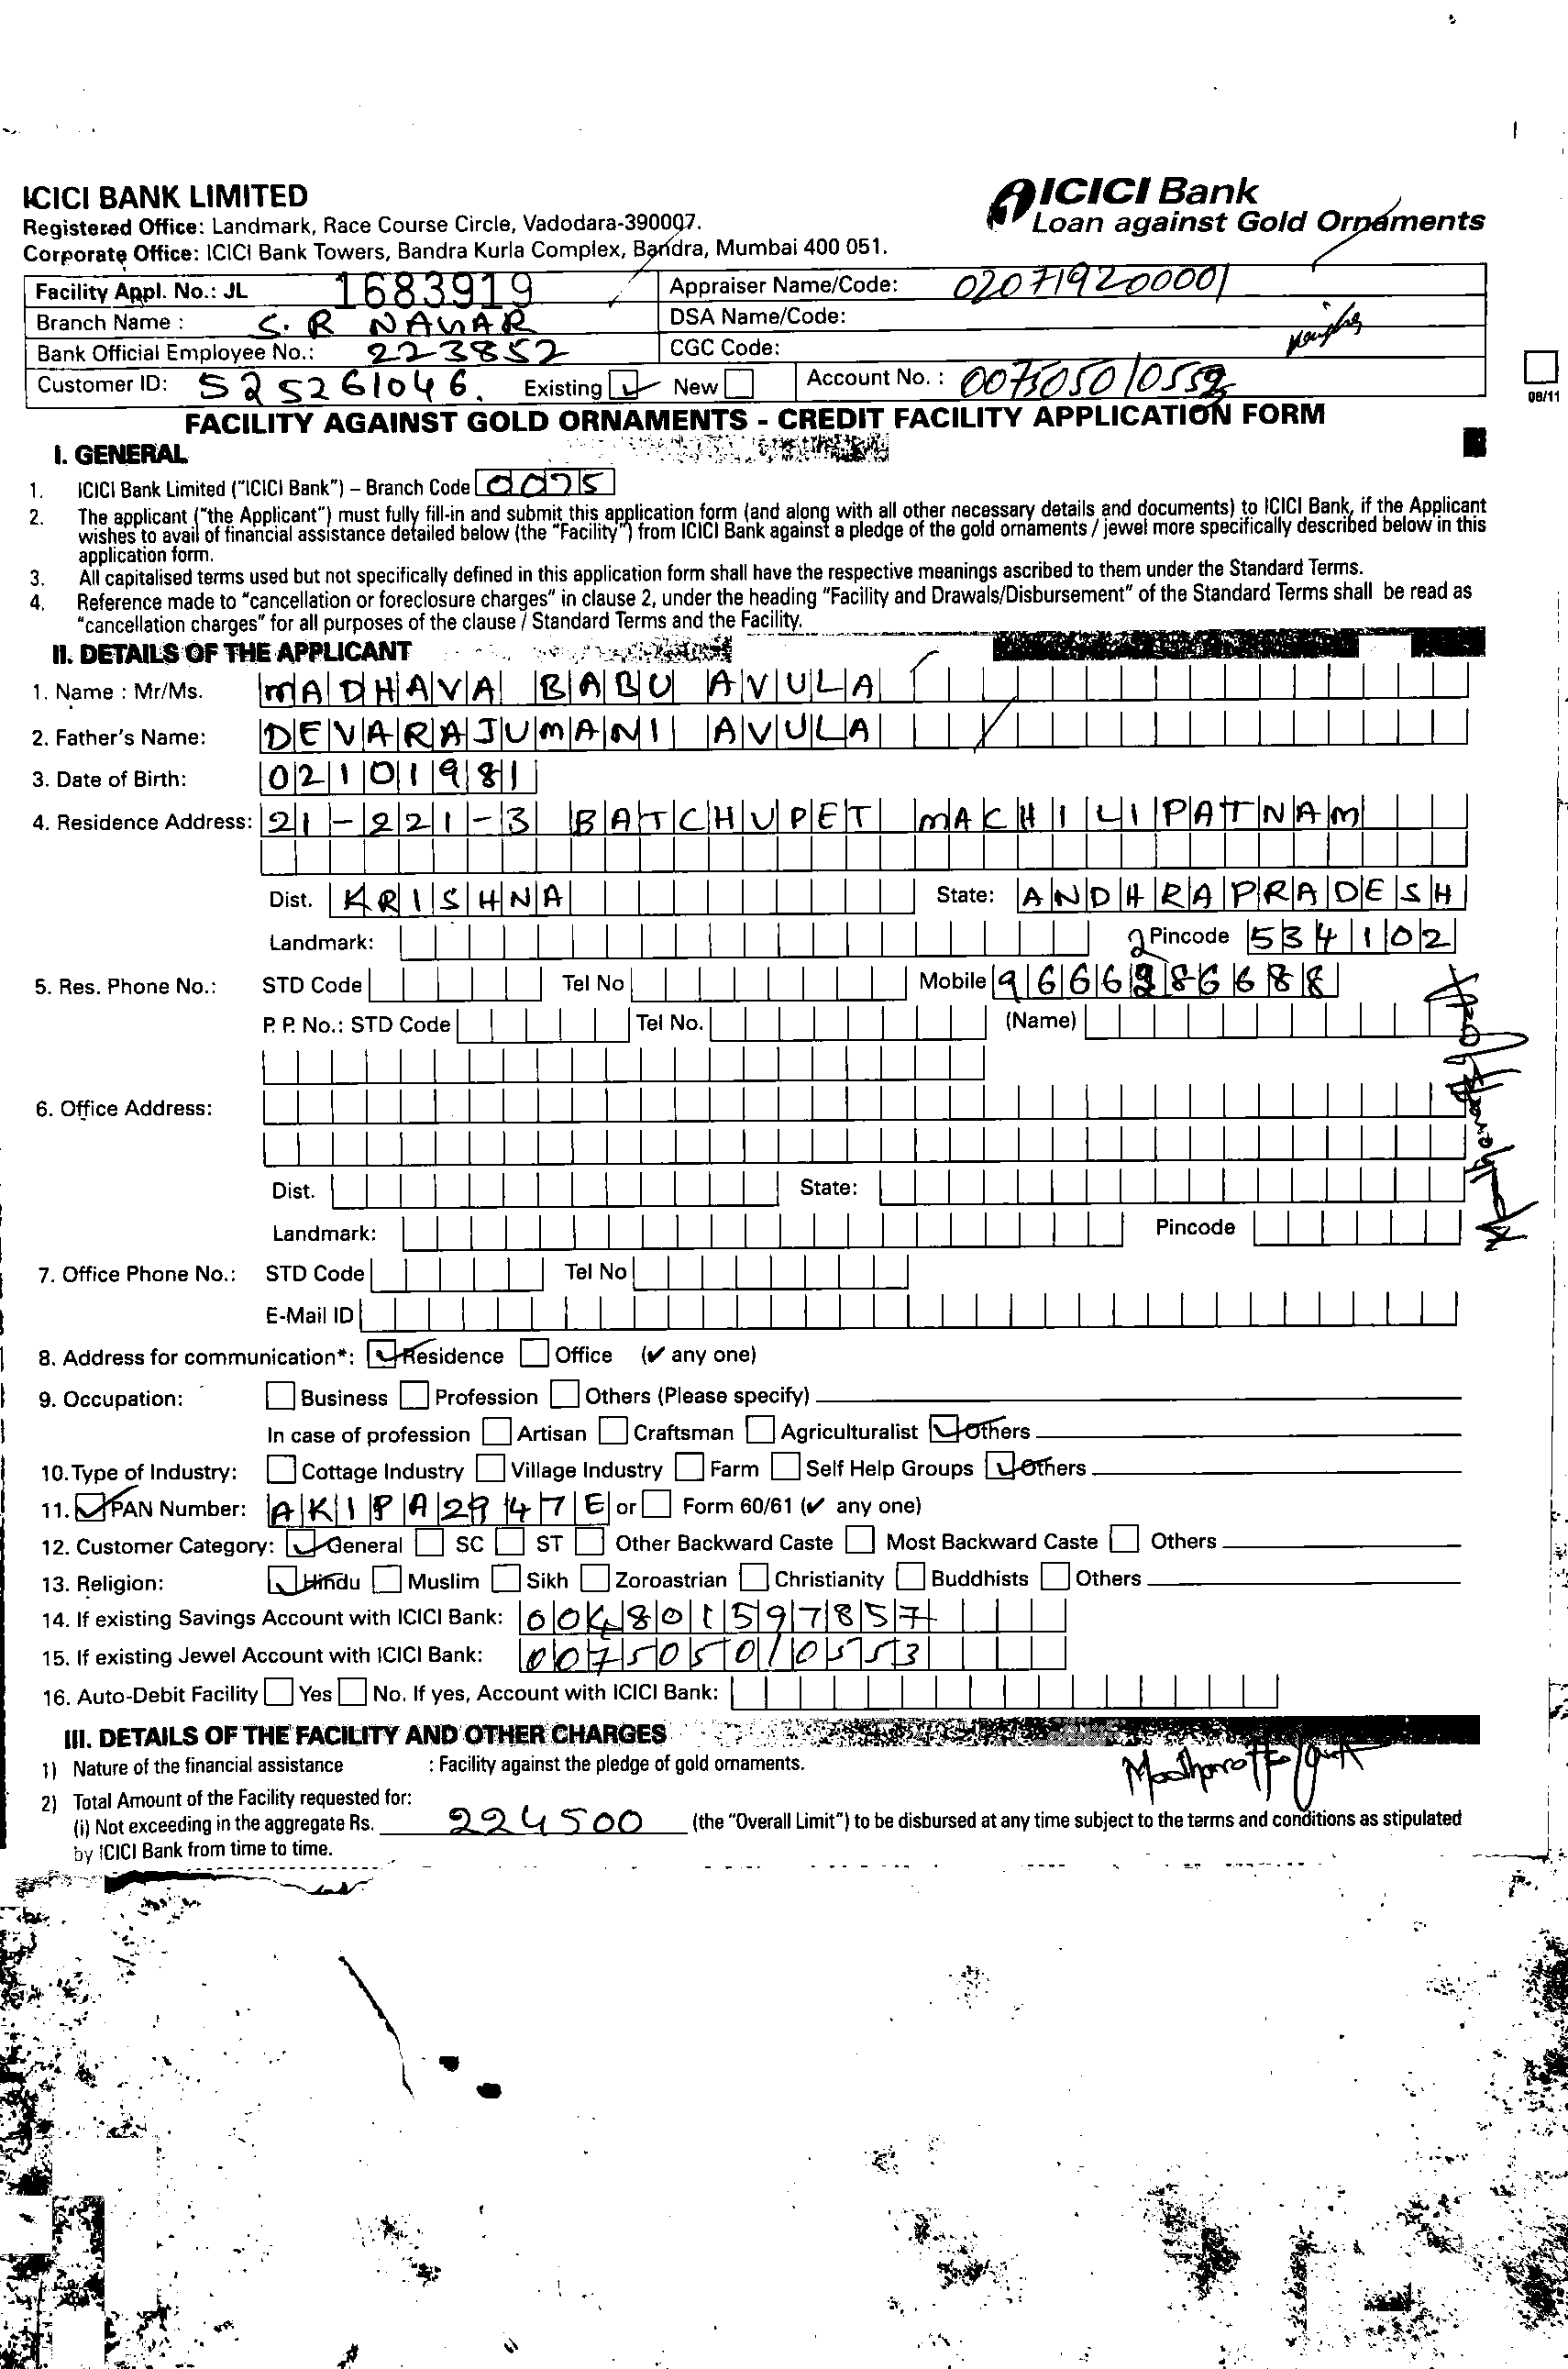 ICICI BANK LIMITED
Registered Office: Landmark, Race Course Circle, Vadodara-390007.
Corporate Office: ICICI Bank Towers, Bandra Kurla Complex, Bandra, Mumbai 400 051.
ICICI Bank
Loan against Gold Ornaments
Facility Appl. No.: JL 1683919 Appraiser Name/Code: 020719200001
Branch Name : S. R NAGAR DSA Name/Code:
Bank Official Employee No.: 223852 CGC Code:
Customer ID: 525261046. Existing New Account No. :
08/11
FACILITY AGAINST GOLD ORNAMENTS - CREDIT FACILITY APPLICATION FORM
I. GENERAL
1. ICICI Bank Limited ("ICICI Bank") – Branch Code 0075
2. The applicant ("the Applicant") must fully fill-in and submit this application form (and along with all other necessary details and documents) to ICICI Bank, if the Applicant
wishes to avail of financial assistance detailed below (the "Facility") from ICICI Bank against a pledge of the gold ornaments / jewel more specifically described below in this
application form.
3. All capitalised terms used but not specifically defined in this application form shall have the respective meanings ascribed to them under the Standard Terms.
4. Reference made to "cancellation or foreclosure charges" in clause 2, under the heading "Facility and Drawals/Disbursement" of the Standard Terms shall be read as
"cancellation charges" for all purposes of the clause / Standard Terms and the Facility.
II. DETAILS OF THE APPLICANT
1. Name : Mr/Ms. MADHAVA BABU AVULA
2. Father's Name: DEVARAJUMANI AVULA
3. Date of Birth: 02101981
4. Residence Address: 21-221-3 BATCHUPET MACHILIPATNAM
Dist. KRISHNA State: ANDHRAPRADESH
Landmark: Pincode 534102
5. Res. Phone No.: STD Code Tel No Mobile 9666286688
P. P. No.: STD Code Tel No. (Name)
6. Office Address:
Dist. State:
Landmark: Pincode
7. Office Phone No.: STD Code Tel No
E-Mail ID
8. Address for communication*: Residence Office (✔ any one)
9. Occupation: Business Profession Others (Please specify)
In case of profession Artisan Craftsman Agriculturalist Others
10. Type of Industry: Cottage Industry Village Industry Farm Self Help Groups Others
11. PAN Number: AKIPA2947E or Form 60/61 (✔ any one)
12. Customer Category: General SC ST Other Backward Caste Most Backward Caste Others
13. Religion: Hindu Muslim Sikh Zoroastrian Christianity Buddhists Others
14. If existing Savings Account with ICICI Bank: 004801597857
15. If existing Jewel Account with ICICI Bank: 007505010553
16. Auto-Debit Facility Yes No. If yes, Account with ICICI Bank:
III. DETAILS OF THE FACILITY AND OTHER CHARGES
1) Nature of the financial assistance : Facility against the pledge of gold ornaments.
2) Total Amount of the Facility requested for:
(i) Not exceeding in the aggregate Rs. 224500 (the "Overall Limit") to be disbursed at any time subject to the terms and conditions as stipulated
by ICICI Bank from time to time.